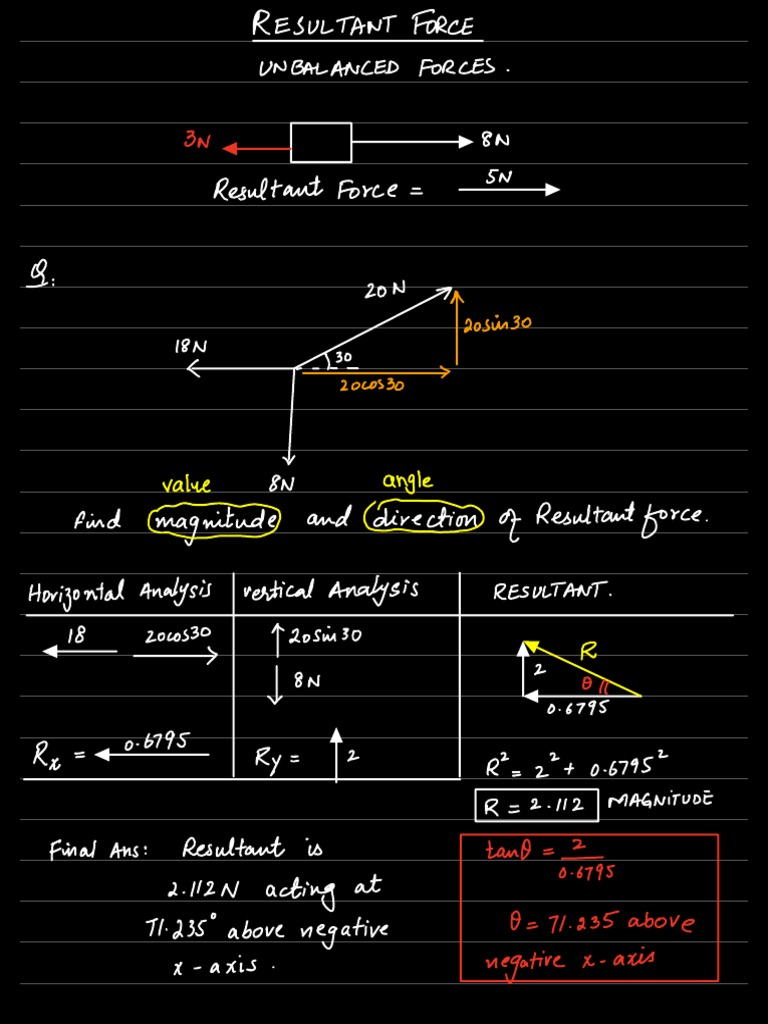 RESULTANT FORCE
UNBALANCED FORCES.
3N 8N
Resultant Force = 5N
Q.
20N
20sin30
18N
30
20cos30
8N
value angle
find magnitude and direction of Resultant force.
Horizontal Analysis vertical Analysis RESULTANT.
18 20cos30 20sin30 R
8N 2 θ
0.6795
Rx = 0.6795 Ry = 2 R² = 2² + 0.6795²
R = 2.112 MAGNITUDE
Final Ans: Resultant is
2.112N acting at
71.235° above negative
x-axis.
tanθ = 2/0.6795
θ = 71.235 above
negative x-axis